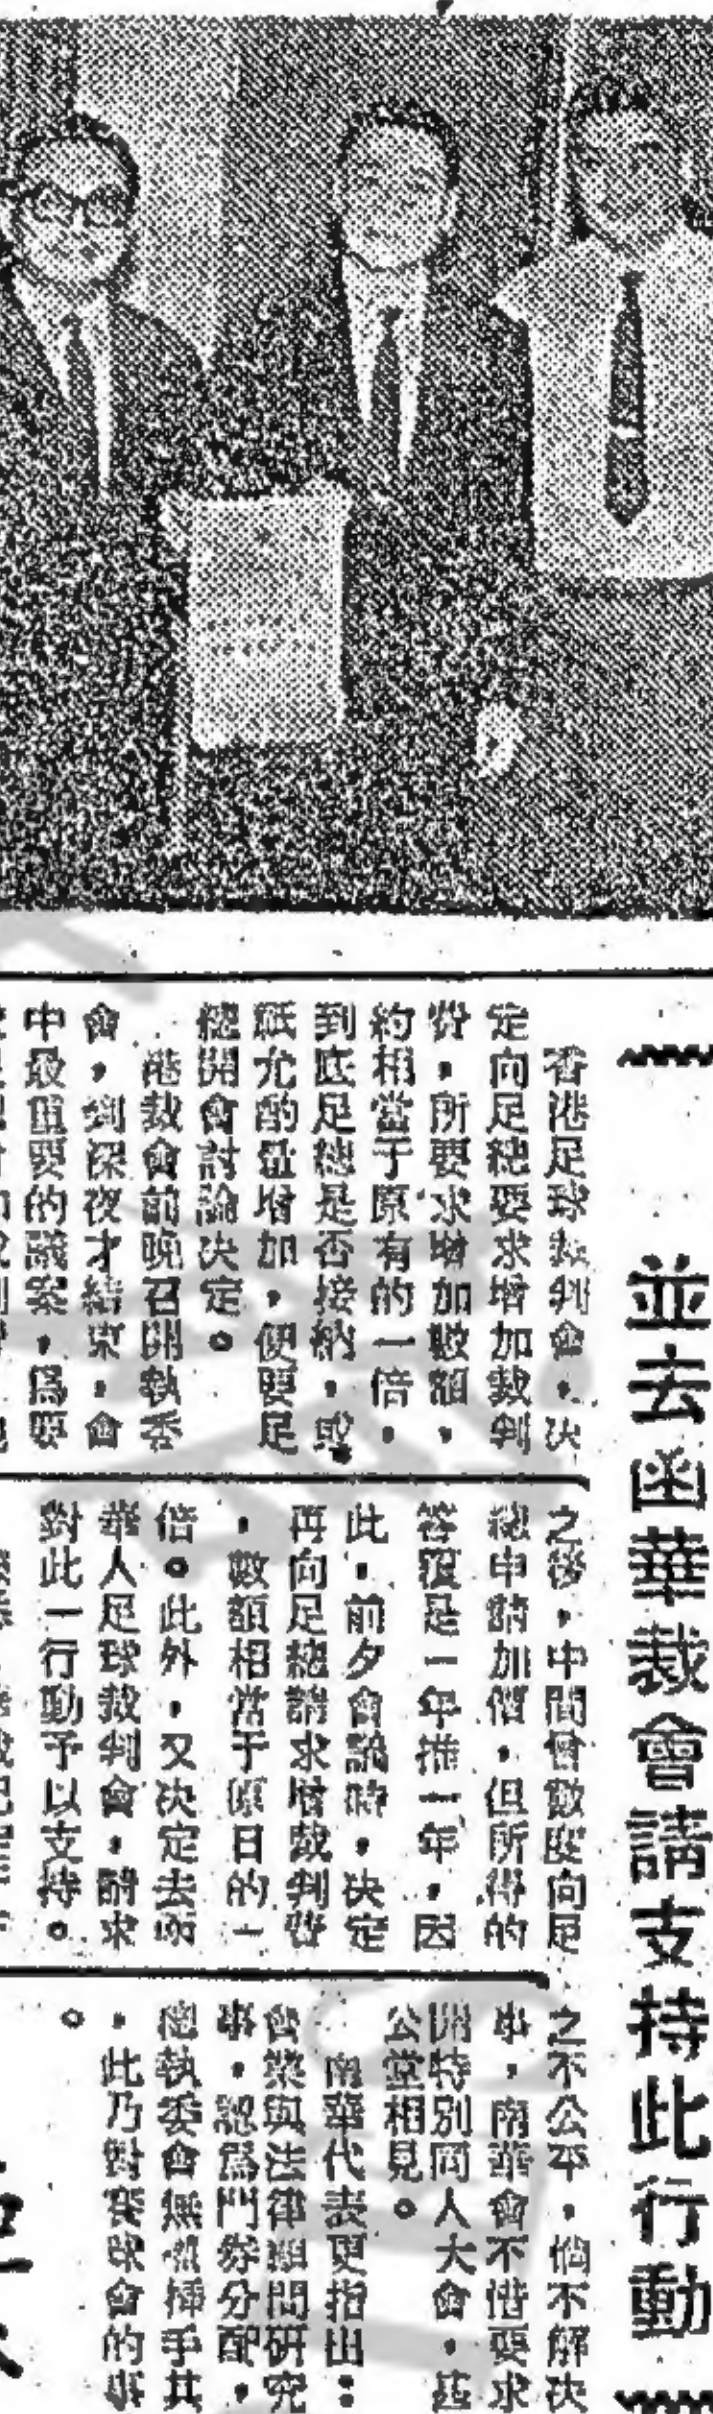 並去函華裁會請支持此行動
香港足球裁判會，决
定向足總要求增加裁判
費，所要求增加數額，
約相當于原有的一倍，
到底足總是否接納，或
祇允酌量增加，便要足
總開會討論決定。
港裁會前晚召開執委
會，到深夜才結束，會
中最重要的議案，爲要
之後，中間曾數度向足
總申請加價，但所得的
答覆是一年推一年，因
此，前夕會議時，决定
再向足總請求增裁判費
，數額相當于原日的一
倍。此外，又決定去函
華人足球裁判會，請求
對此一行動予以支持。
之不公平，倘不解决
事，南華會不惜要求
開特別同人大會，甚
公堂相見。
南華代表更指出：
會章與法律顧問研究
事，認爲門券分配，
總執委會無權插手其
，此乃對賽球會的事
。